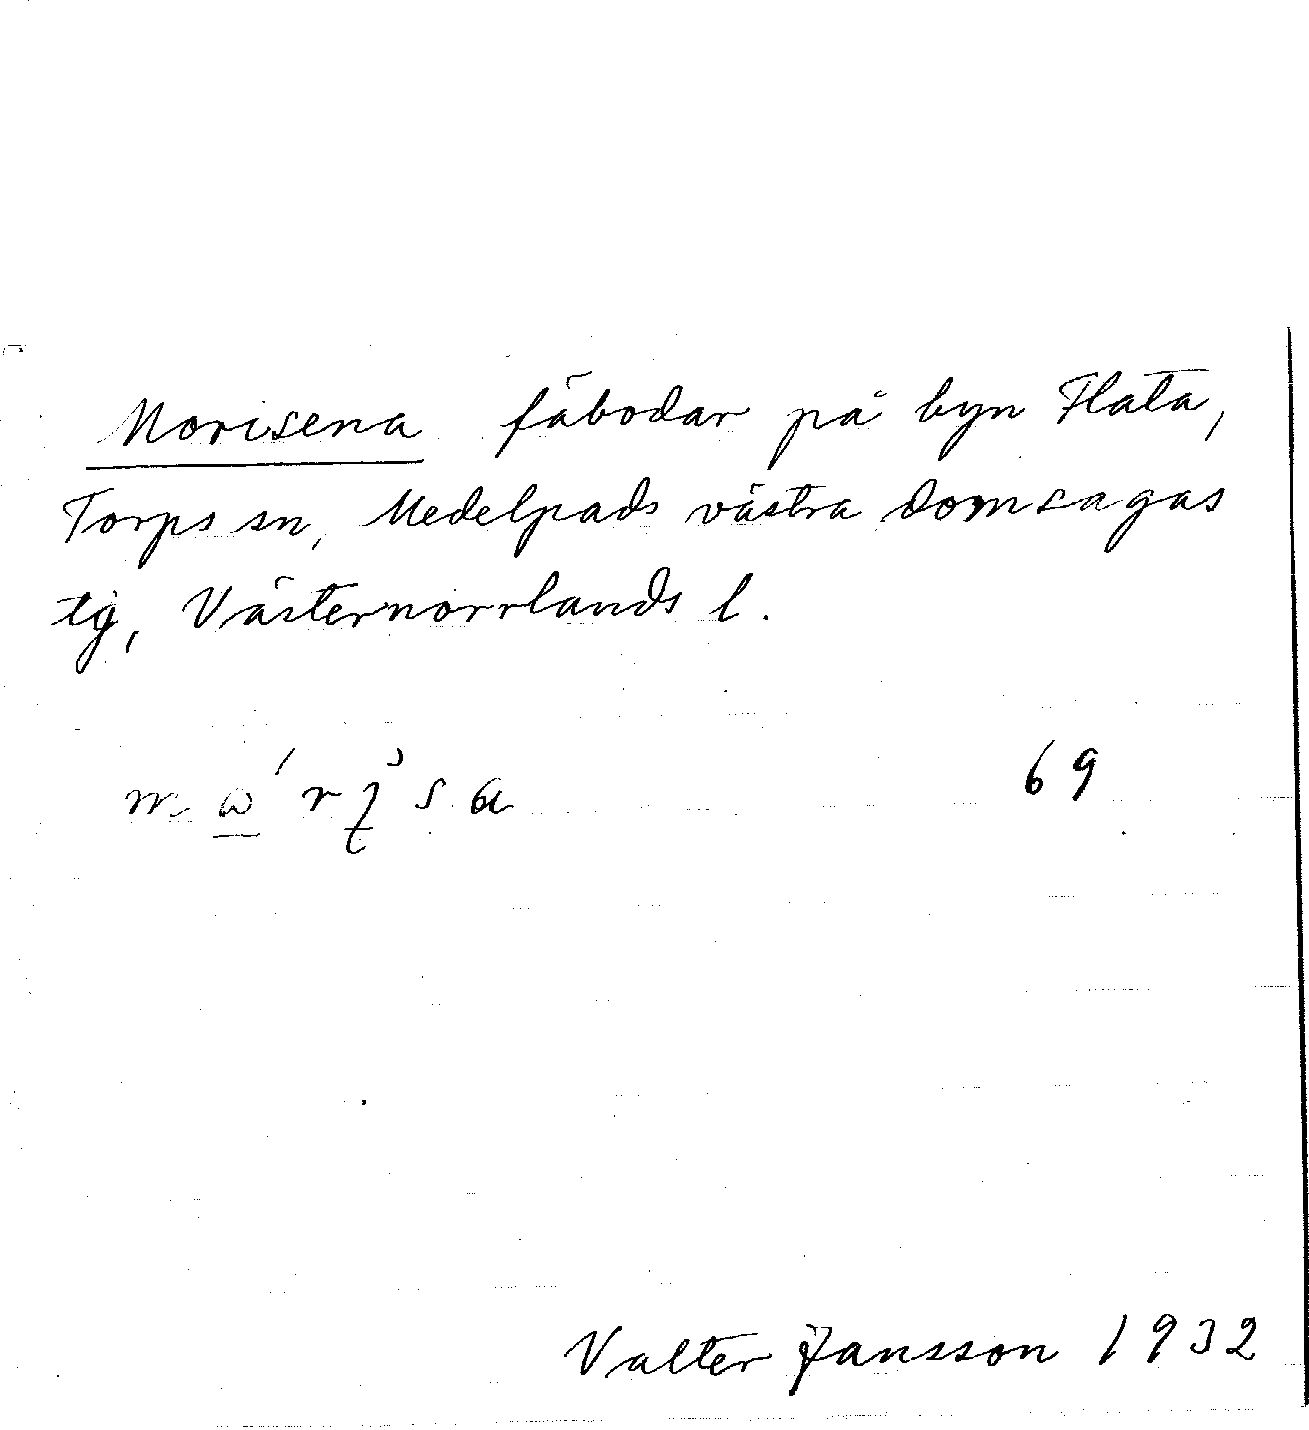 Morisena fäbodar på byn Flata,
Torps sn, Medelpads västra domsagas
tg, Västernorrlands l.
69
Valter Jansson 1932